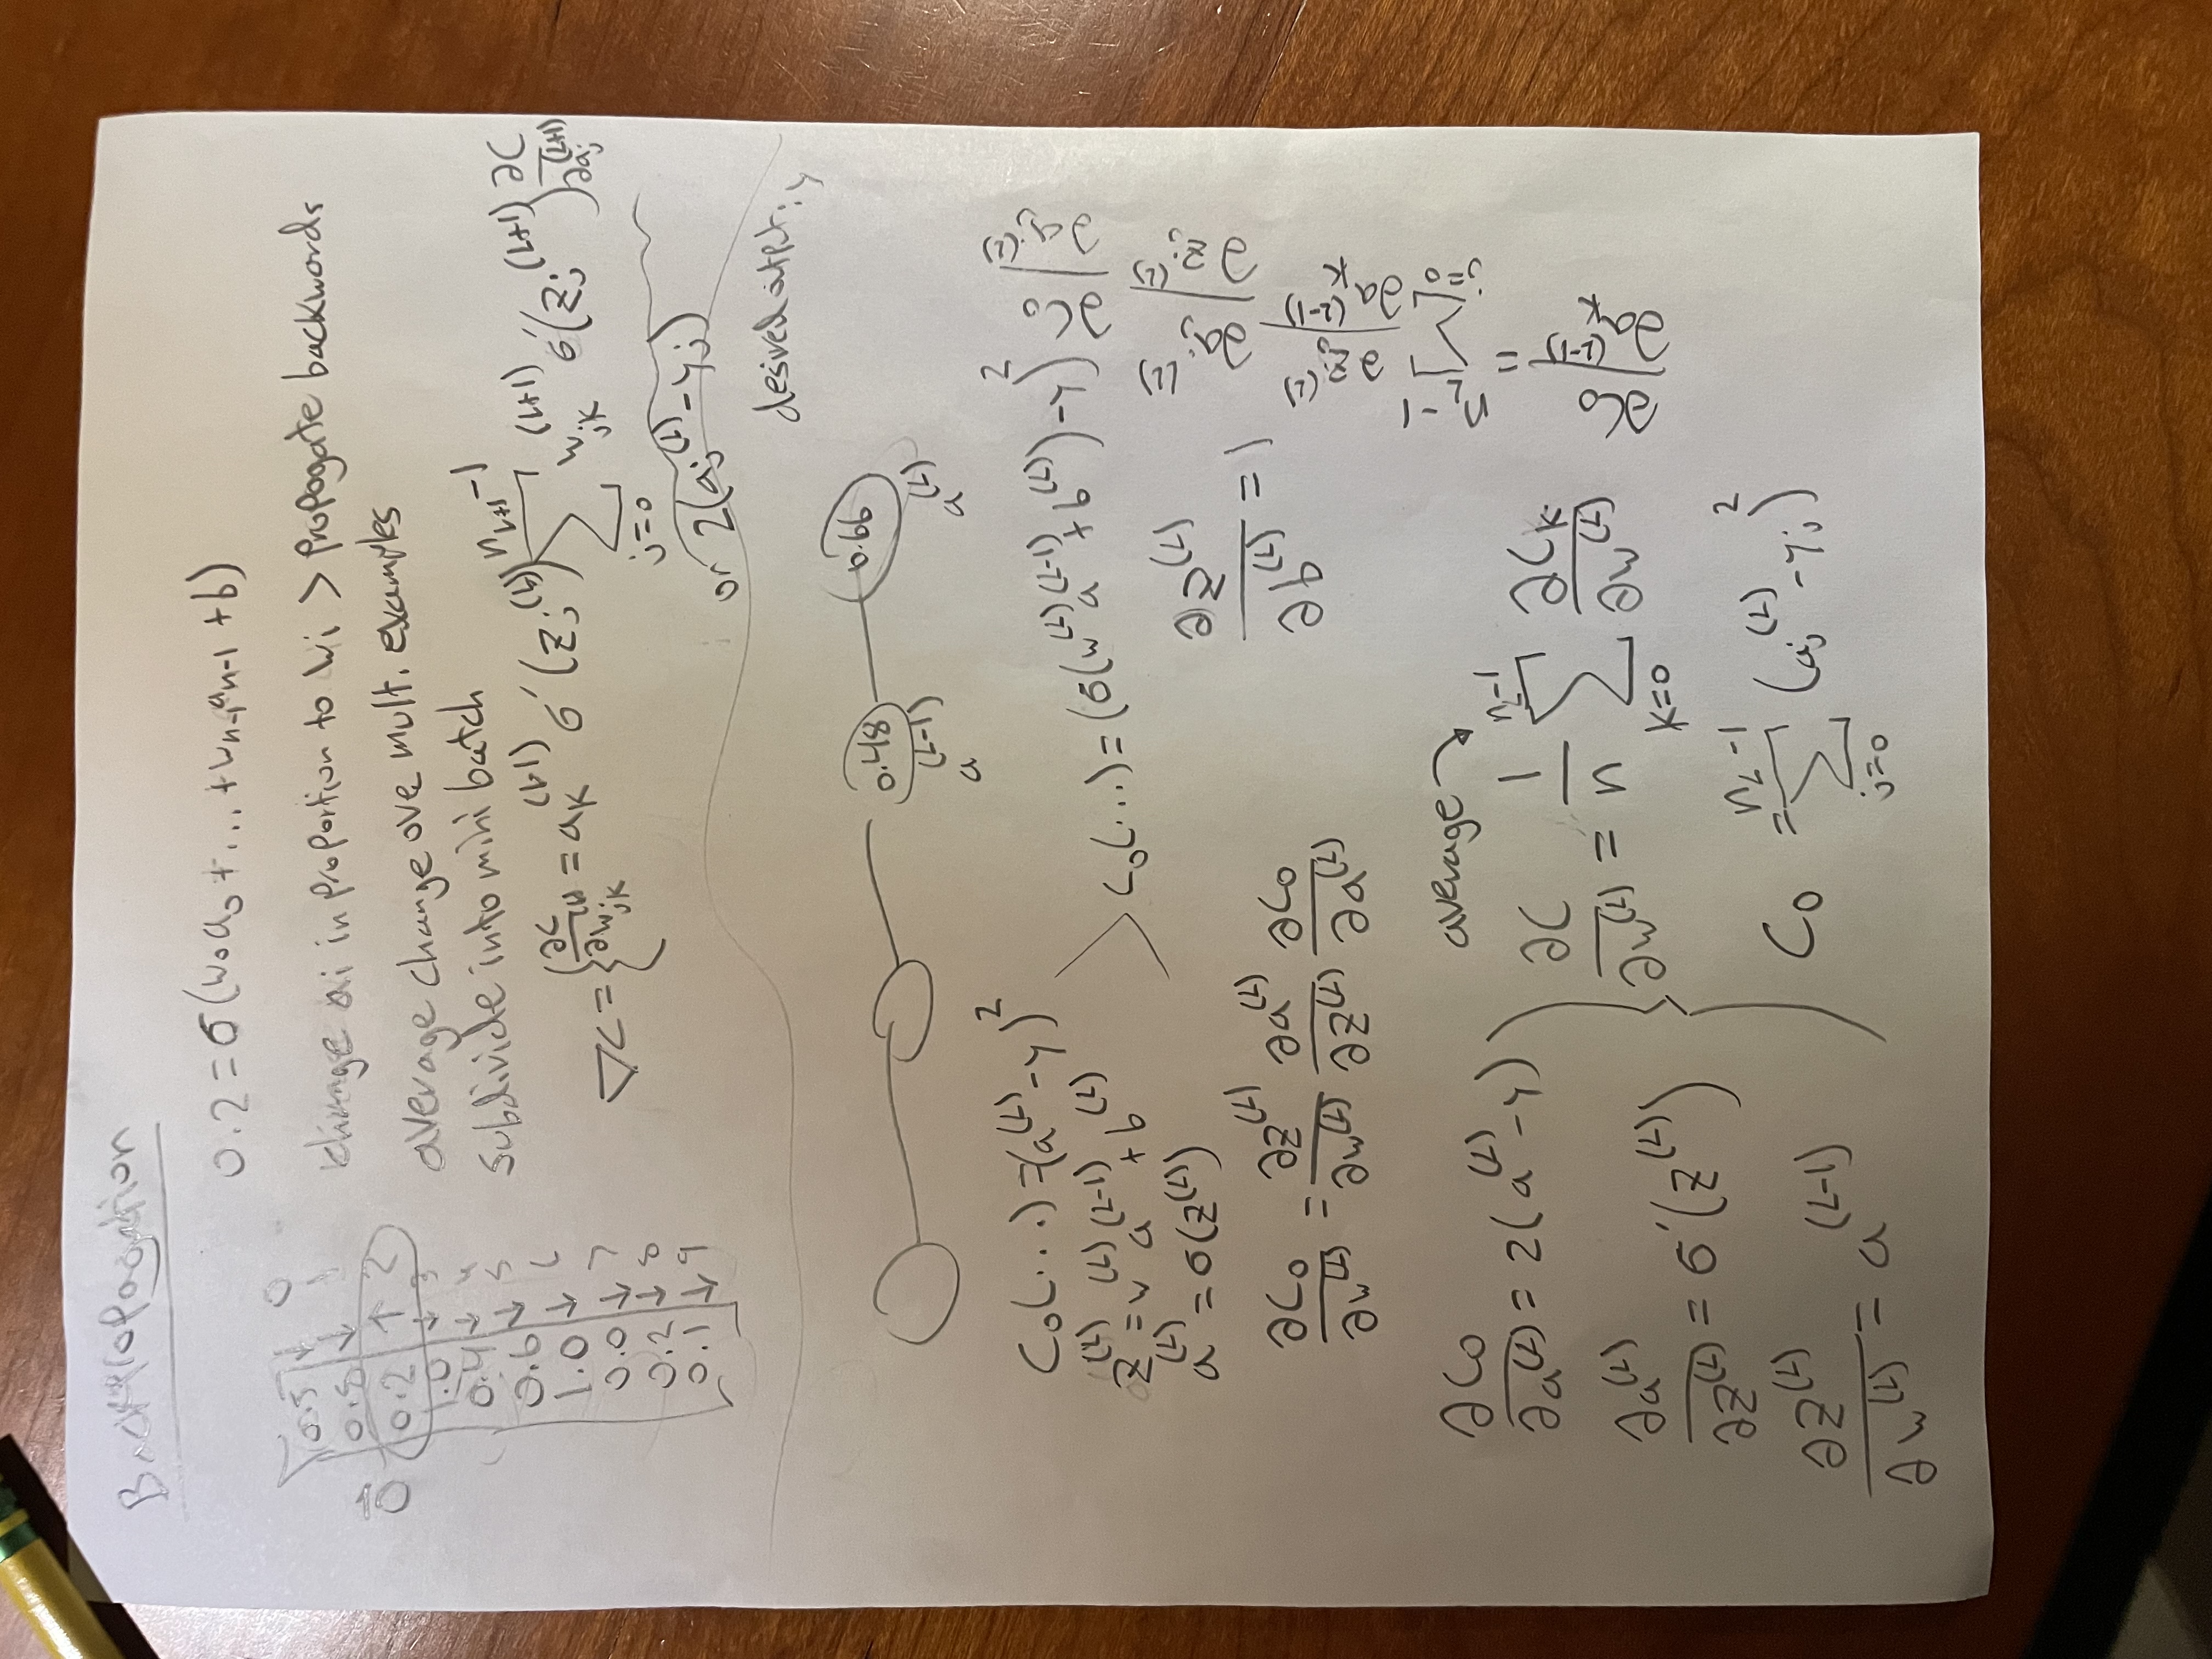 Backpropagation
0.2 = σ(w₀a₀ + ... + wₙ₋₁aₙ₋₁ + b)
0.5 ↓ 0
0.8 ↓ 1
0.2 ↑ 2
1.0 ↓ 3
0.4 ↓ 4
0.6 ↓ 5
1.0 ↓ 6
0.0 ↓ 7
0.2 ↓ 8
0.1 ↓ 9
change ai in proportion to wi > propogate backwords
average change ove mult. examples
subdivide into mini batch
∇C = { ∂C/∂w_jk^(L) = a_k^(L-1) σ'(z_j^(L)) Σ_{j=0}^{n_{L+1}-1} w_jk^(L+1) σ'(z_j^(L+1)) ∂C/∂a_j^(L+1)
or 2(a_j^(L) - y_j)
desired output: y
0.48 0.66
a^(L-1) a^(L)
C₀(...) = (a^(L) - y)²
z^(L) = w^(L) a^(L-1) + b^(L)
a^(L) = σ(z^(L))
C₀(...) = (σ(w^(L) a^(L-1) + b^(L)) - y)²
∂C₀/∂w^(L) = ∂z^(L)/∂w^(L) ∂a^(L)/∂z^(L) ∂C₀/∂a^(L)
∂z^(L)/∂b^(L) = 1
∂C₀/∂a^(L) = 2(a^(L) - y)
∂a^(L)/∂z^(L) = σ'(z^(L))
∂z^(L)/∂w^(L) = a^(L-1)
average
∂C/∂w^(L) = 1/n Σ_{k=0}^{n_L-1} ∂C_k/∂w^(L)
C₀ = Σ_{j=0}^{n_L-1} (a_j^(L) - y_j)²
∂C₀/∂a_k^(L-1) = Σ_{j=0}^{n_L-1} ∂z_j^(L)/∂a_k^(L-1) ∂a_j^(L)/∂z_j^(L) ∂C₀/∂a_j^(L)